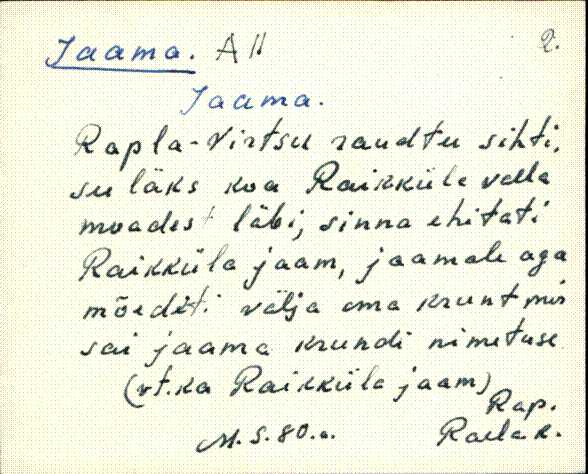 Jaama. A II 2.
Jaama.
Rapla-Virtsu raudtu sihti,
su läks koa Raikküla valla
moadest läbi, sinna ehitati
Raikküla jaam, jaamale aga
mõedeti välja oma krunt mis
sai jaama krundi nimetuse
(vt. ka Raikküla jaam)
Rap.
M. S. 80. a. Raela k.